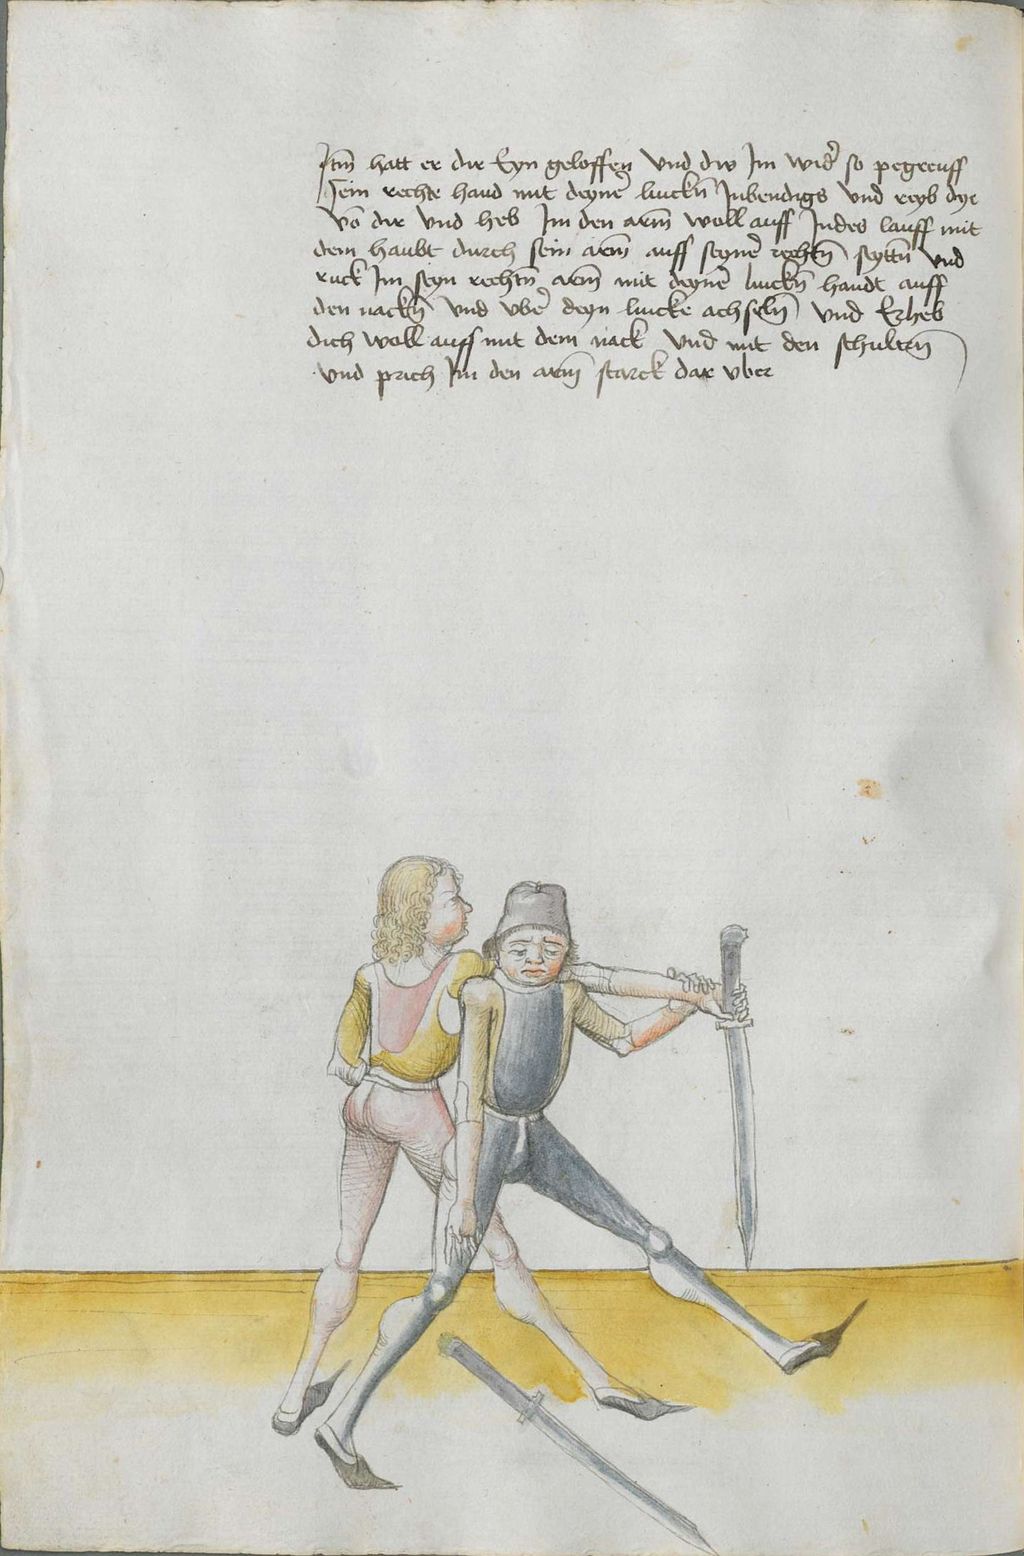 Itm̄ hatt er dir Eyn geloffen vnd dw Im wid' so pegreuff
sein rechte hand mit deyne' linckn̄ Inbendigs vnd reyb dye
vō dir vnd heb Im den arm̄ woll auff Indes lauff mit
dem haubt durch sein arm̄ auff seyne' rechtn̄ seyttn̄ vnd
ruck Im seyn rechtn̄ arm̄ mit deyne' linckn̄ handt auff
den nackn̄ vnd vbe' deyn lincke achseln̄ vnd Erheb
dich woll auff mit dem nack vnd mit den schultrn̄
vnd prich Im den arm̄ starck dar vber